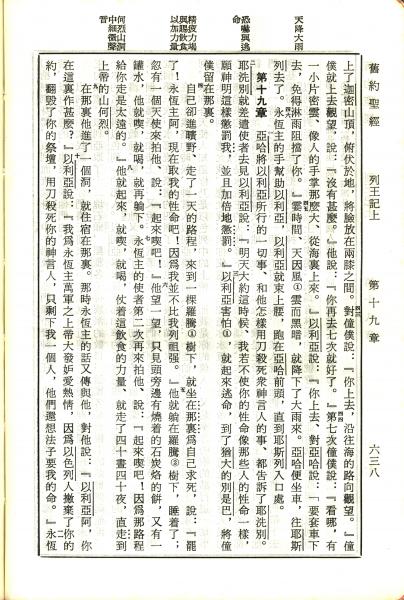 舊約聖經　列王記上　第十九章　六三八
天降大雨
恐嚇與逃
命
精疲力竭
與賜飲食
以加力量
何烈山洞
中細微聲
音
上了迦密山頂，俯伏於地，將臉放在兩膝之間。對僮僕說：『你上去，沿往海的路向觀望。』僮
僕就上去觀望，說：『沒有甚麼。』他說：『你再去七次就好了。』第七次僮僕說：『看哪，有
一小片密雲、像人的手掌那麼大、從海裏上來。』以利亞說：『你上去、對亞哈說：「要套車下
去，免得淋雨阻擋了你。』霎時間、天因風①雲而黑暗，就降下了大雨來。亞哈便坐車，往耶斯
列去了。永恒主的手幫助以利亞，以利亞就束上腰，跑在亞哈前頭，直到耶斯列入口處。
第十九章　亞哈將以利亞所行的一切事、和他怎樣用刀殺死衆神言人的事、都告訴了耶洗別。
耶洗別就差遣使者去見以利亞說：『明天大約這時候、我若不使你的性命像那些人的性命一樣，
願神明這樣懲罰我，並且加倍地懲罰。』以利亞害怕①，就起來逃命，到了猶大的別是巴，將僮
僕留在那裏。
自己卻進曠野、走了一天的路程，來到一棵羅騰①樹下，就坐在那裏爲自己求死，說：『罷
了！永恒主阿，現在取我的性命吧！因爲我並不比我列祖强。』他就躺在羅騰③樹下，睡着了；
忽有一個天使來拍他、說：『起來喫吧！』他望一望，只見頭旁邊有燒着的石炭烙的餅，又有一
罐水，他就喫，就喝，就再躺下。永恒主的使者第二次再來拍他、說：『起來喫吧！因爲那路程
給你走是太遠的。』他就起來，就喫，就喝，仗着這飲食的力量、就走了四十晝四十夜，直走到
上帝的山何烈。
在那裏他進了一個洞，就住宿在那裏。那時永恒主的話又傳與他，對他說：『以利亞阿，你
在這裏作甚麼？』以利亞說：『我爲永恒主萬軍之上帝大發妒愛熱情，因爲以色列人撇棄了你的
約，翻毀了你的祭壇，用刀殺死你的神言人，只剩下我一個人，他們還想法子要我的命。』永恒